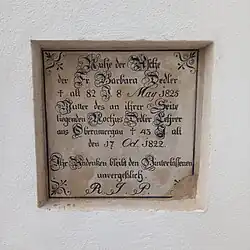 Ruhe der Asche
der Fr. Barbara Dedler
† alt 82 J. 8 May 1825
Mutter des an ihrer Seite
liegenden Rochus Dedler Lehrer
aus Oberamergau † 43 J. alt
den 17 Oct. 1822.
Ihr Andenken bleibt den Hinterlassenen
unvergeßlich
R. I. P.